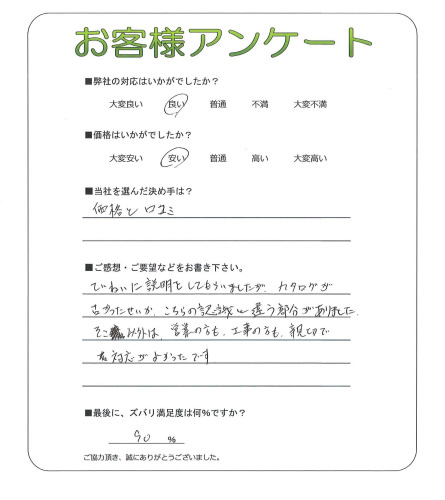 お客様アンケート
■弊社の対応はいかがでしたか?
大変良い 良い 普通 不満 大変不満
■価格はいかがでしたか?
大変安い 安い 普通 高い 大変高い
■当社を選んだ決め手は?
価格と口コミ
■ご感想・ご要望などをお書き下さい。
ていねいに説明をしてもらいましたが、カタログが
古かったせいか、こちらの認識と違う部分がありました。
そこ以外は、営業の方も、工事の方も、親切で
対応がよかったです
■最後に、ズバリ満足度は何%ですか?
90 %
ご協力頂き、誠にありがとうございました。